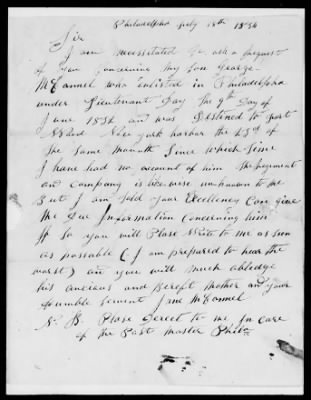 Philadelphia July 18th 1836
Sir
I am necessitated to ask a request
of you concerning my son George
McConnel who enlisted in Philadelphia
under Lieutenant Day the 9th Day of
June 1834 and was Destined to port
Wood New york harbor the 23d of
the same month Since which time
I have had no account of him the Regiment
and Company is likewise unknown to me
But I am told your Excellency Can give
me due Information concerning him
If so you will Please Write to me as soon
as possable (I am prepared to hear the
worst) and you will much abledge
his ancious and Bereft mother and your
Humble servent Jane McConnel
N. B. Please derect to me In care
of the Post master Phila